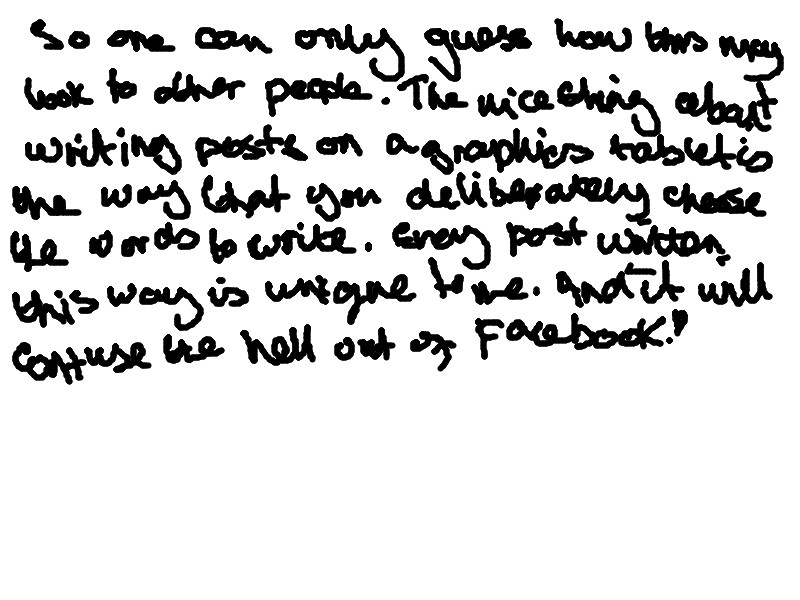 So one can only guess how this may
look to other people. The nice thing about
writing posts on a graphics tablet is
the way that you deliberately choose
the words to write. Every post written
this way is unique to me. And it will
confuse the hell out of Facebook!